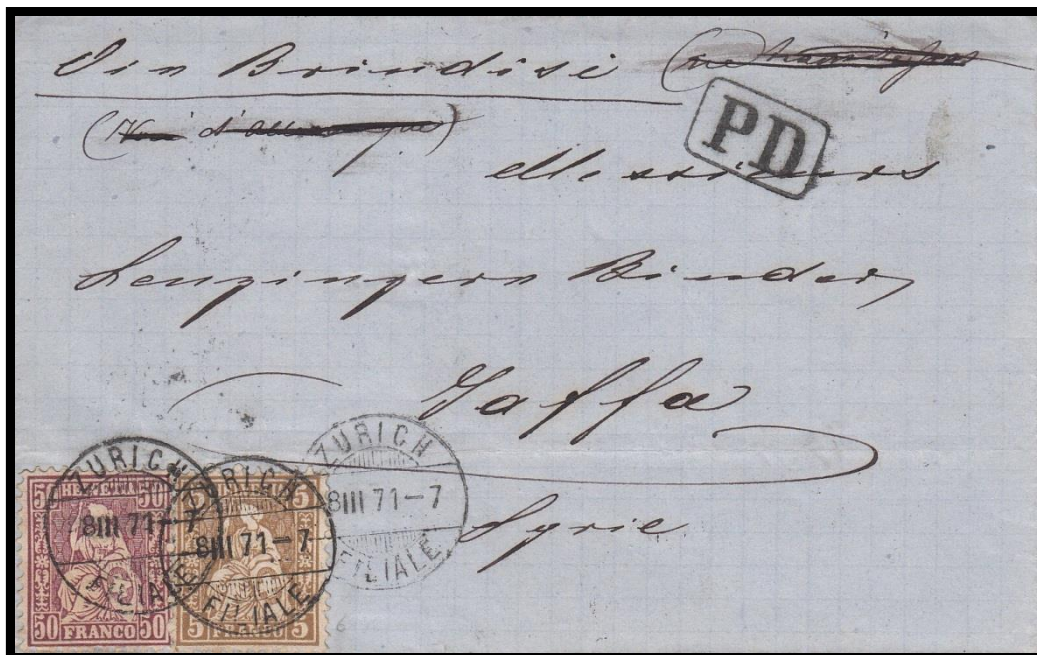 Via Brindisi
PD
Messieurs
Lenzinger Binder
Jaffa
Syrie
ZURICH
8III 71-7
FILIALE
ZURICH
8III 71-7
FILIALE
ZURICH
8III 71-7
FILIALE
50 HELVETIA 50
50 FRANCO 50
5 5
5 FRANCO 5